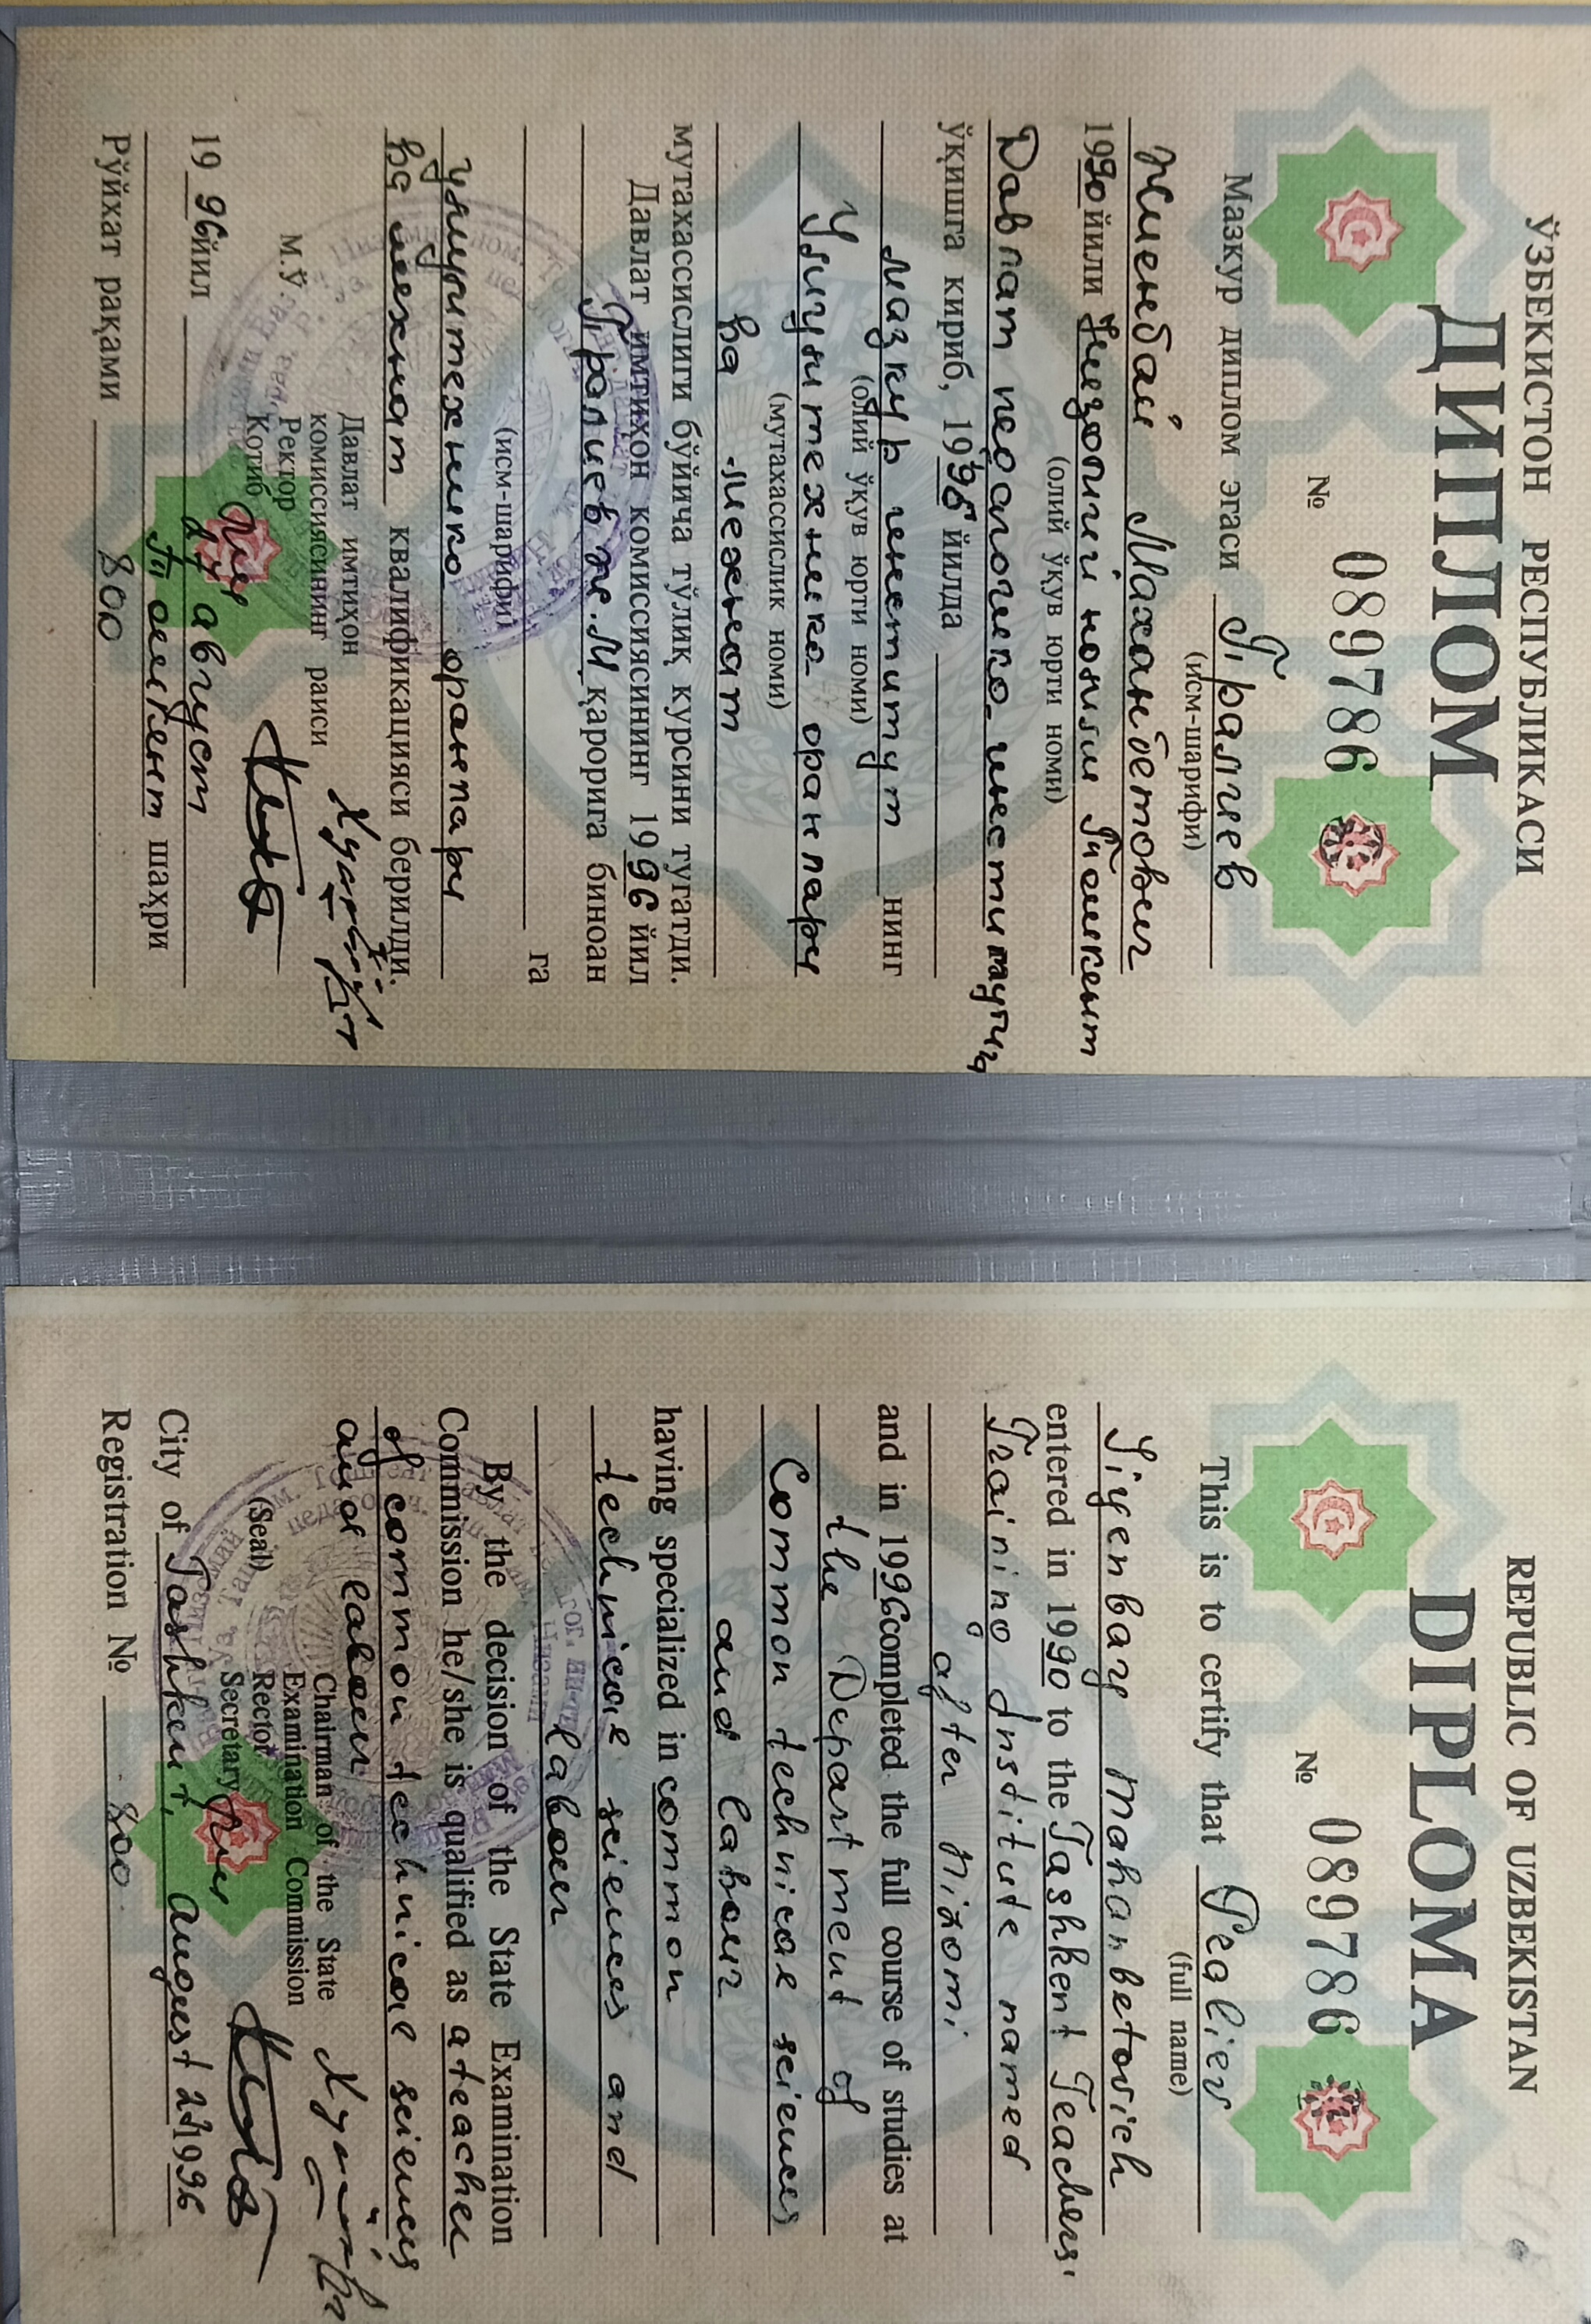 ЎЗБЕКИСТОН РЕСПУБЛИКАСИ
ДИПЛОМ
№ 089786
Мазкур диплом эгаси Тралиев
(исм-шарифи)
Жиенбай Маханбетович
1990 йили Низомий номли Тошкент
(олий ўқув юрти номи)
Давлат педагогика институтига
ўқишга кириб, 1996 йилда
мазкур институт нинг
(олий ўқув юрти номи)
Умумтехника фанлари
(мутахассислик номи)
ва меҳнат
мутахассислиги бўйича тўлиқ курсини тугатди.
Давлат имтиҳон комиссиясининг 1996 йил
Тралиев Ж.М қарорига биноан
га
(исм-шарифи)
умумтехника фанлари
ва меҳнат квалификацияси берилди.
Давлат имтиҳон
комиссиясининг раиси
М.Ў Ректор
Котиб
1996 йил август
Тошкент шаҳри
Рўйхат рақами 800
REPUBLIC OF UZBEKISTAN
DIPLOMA
№ 089786
This is to certify that Traliev
(full name)
Jiyenbay Mahanbetovich
entered in 1990 to the Tashkent Teachers'
Training Institute named
after Nizomi
and in 1996 completed the full course of studies at
the Department of
Common technical sciences
and labour
having specialized in common
technical sciences and
labour
By the decision of the State Examination
Commission he/she is qualified as a teacher
of common technical sciences
and labour
Chairman of the State
Examination Commission
(Seal) Rector
Secretary
City of Tashkent, August 1996
Registration № 800